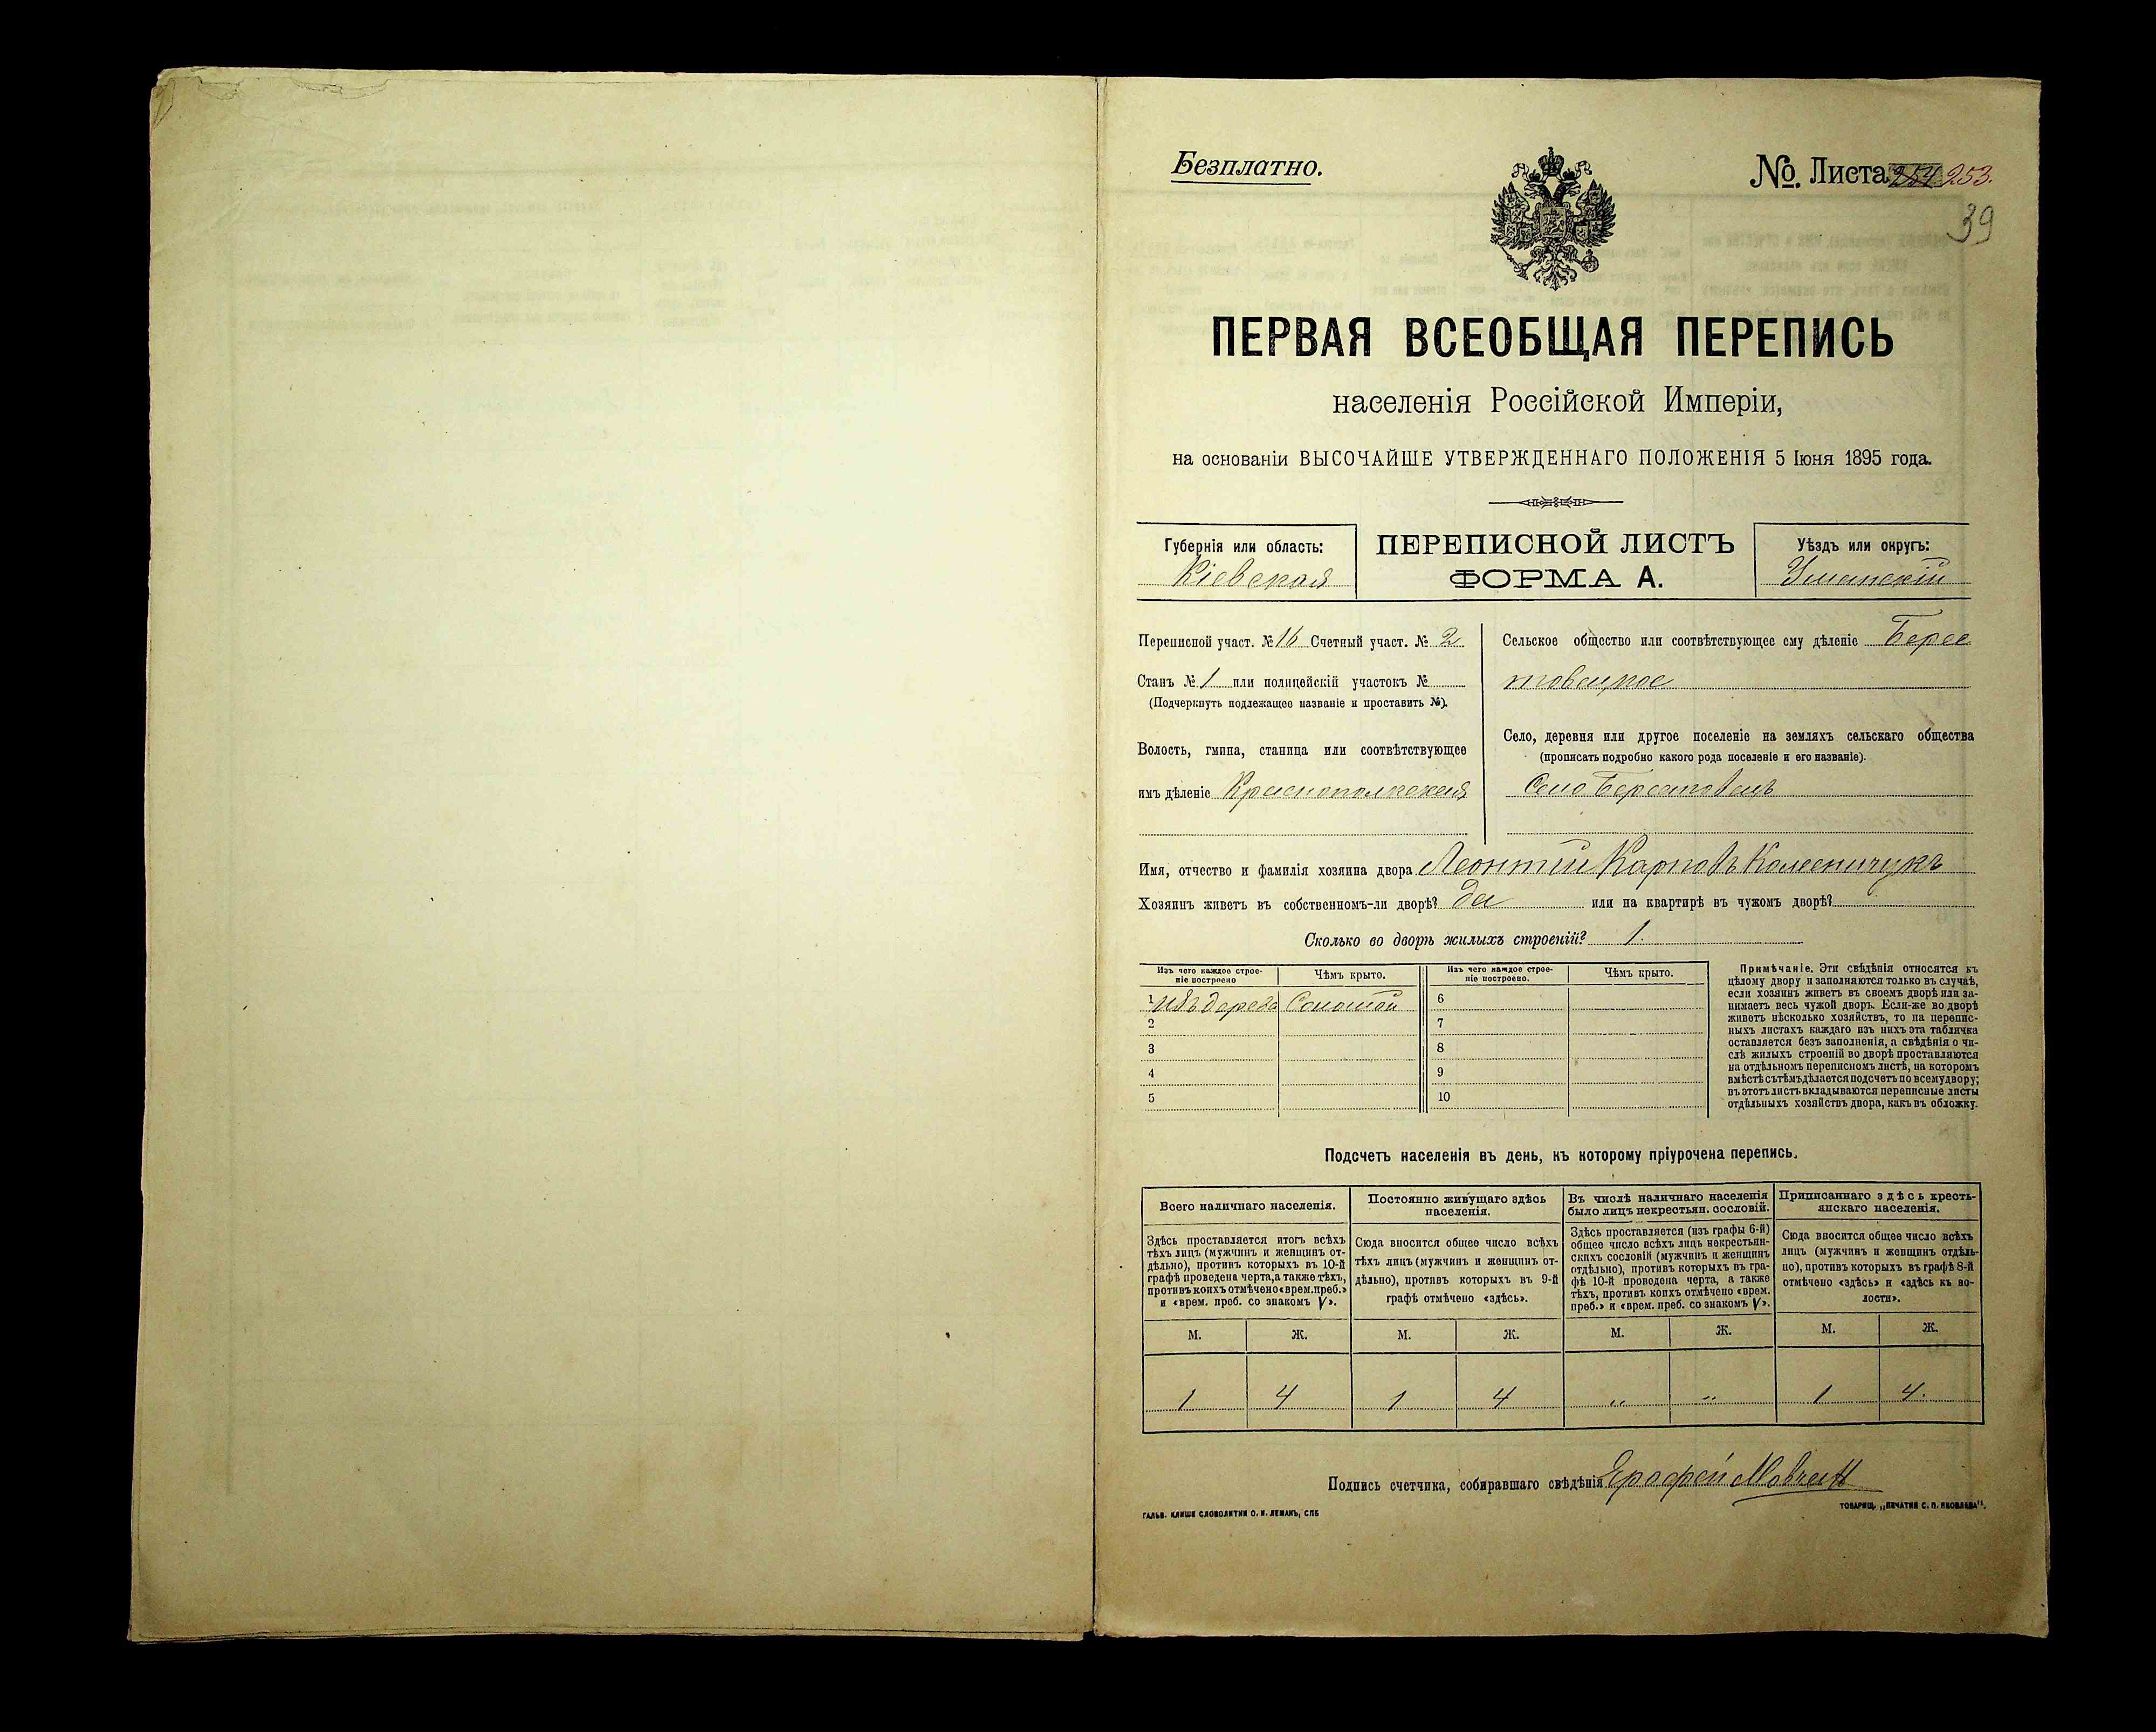 Безплатно.
№. Листа 253.
39
ПЕРВАЯ ВСЕОБЩАЯ ПЕРЕПИСЬ
населенія Россійской Имперіи,
на основаніи ВЫСОЧАЙШЕ УТВЕРЖДЕННАГО ПОЛОЖЕНІЯ 5 Іюня 1895 года.
Губернія или область:
Кіевская
ПЕРЕПИСНОЙ ЛИСТЪ
ФОРМА А.
Уѣздъ или округъ:
Уманскій
Переписной участ. № 16 Счетный участ. № 2
Станъ № 1 или полицейскій участокъ №
(Подчеркнуть подлежащее названіе и проставить №).
Волость, гмина, станица или соотвѣтствующее
имъ дѣленіе Краснополкская
Сельское общество или соотвѣтствующее ему дѣленіе Берес
товецкое
Село, деревня или другое поселеніе на земляхъ сельскаго общества
(прописать подробно какого рода поселеніе и его названіе).
Село Берестовецъ
Имя, отчество и фамилія хозяина двора Леонтій Карповъ Колесничукъ
Хозяинъ живетъ въ собственномъ-ли дворѣ? да или на квартирѣ въ чужомъ дворѣ?
Сколько во дворѣ жилыхъ строеній? 1.
Изъ чего каждое строе-
ніе построено
Чѣмъ крыто.
Изъ чего каждое строе-
ніе построено.
Чѣмъ крыто.
1 изъ дерева Соломой
2
3
4
5
6
7
8
9
10
Примѣчаніе. Эти свѣдѣнія относятся къ
цѣлому двору и заполняются только въ случаѣ,
если хозяинъ живетъ въ своемъ дворѣ или за-
нимаетъ весь чужой дворъ. Если-же во дворѣ
живетъ нѣсколько хозяйствъ, то на перепис-
ныхъ листахъ каждаго изъ нихъ эта табличка
оставляется безъ заполненія, а свѣдѣнія о чи-
слѣ жилыхъ строеній во дворѣ проставляются
на отдѣльномъ переписномъ листѣ, на которомъ
вмѣстѣ съ тѣмъ дѣлается подсчетъ по всему двору;
въ этотъ листъ вкладываются переписные листы
отдѣльныхъ хозяйствъ двора, какъ въ обложку.
Подсчетъ населенія въ день, къ которому пріурочена перепись.
Всего наличнаго населенія.
Постоянно живущаго здѣсь
населенія.
Въ числѣ наличнаго населенія
было лицъ некрестьян. сословій.
Приписаннаго здѣсь кресть-
янскаго населенія.
Здѣсь проставляется итогъ всѣхъ
тѣхъ лицъ (мужчинъ и женщинъ от-
дѣльно), противъ которыхъ въ 10-й
графѣ проведена черта, а также тѣхъ,
противъ коихъ отмѣчено «врем. преб.»
и «врем. преб. со знакомъ V».
Сюда вносится общее число всѣхъ
тѣхъ лицъ (мужчинъ и женщинъ от-
дѣльно), противъ которыхъ въ 9-й
графѣ отмѣчено «здѣсь».
Здѣсь проставляется (изъ графы 6-й)
общее число всѣхъ лицъ некрестьян-
скихъ сословій (мужчинъ и женщинъ
отдѣльно), противъ которыхъ въ гра-
фѣ 10-й проведена черта, а также
тѣхъ, противъ коихъ отмѣчено «врем.
преб.» и «врем. преб. со знакомъ V».
Сюда вносится общее число всѣхъ
лицъ (мужчинъ и женщинъ отдѣль-
но), противъ которыхъ въ графѣ 8-й
отмѣчено «здѣсь» и «здѣсь къ во-
лости».
М. Ж. М. Ж. М. Ж. М. Ж.
1 4 1 4 „ „ 1 4.
Подпись счетчика, собиравшаго свѣдѣнія Ерофей
ГАЛЬВ. КЛИШЕ СЛОВОЛИТНИ О. И. ЛЕМАНЪ, СПБ
ТОВАРИЩ. „ПЕЧАТНЯ С. П. ЯКОВЛЕВА".